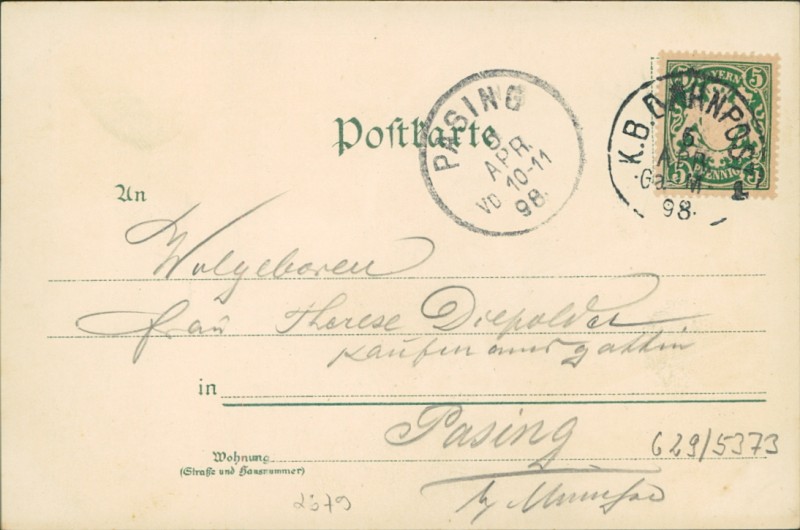 Postkarte
PASING
5
APR.
VD 10-11
98.
BAYERN
5 5
5 PFENNIG
K.B.BAHNPOST
5
APR
98.
An
Wolgeboren
Frau Therese Diepolder
Kaufmannsgattin
in
Pasing
629/5373
Wohnung
(Straße und Hausnummer)
b/ München
2379